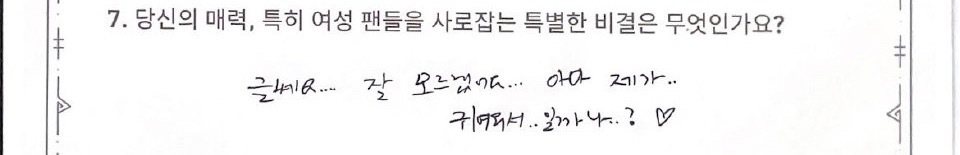 7. 당신의 매력, 특히 여성 팬들을 사로잡는 특별한 비결은 무엇인가요?
글쎄요.... 잘 모르겠어요... 아마 제가..
귀여워서..일까나..? ♡